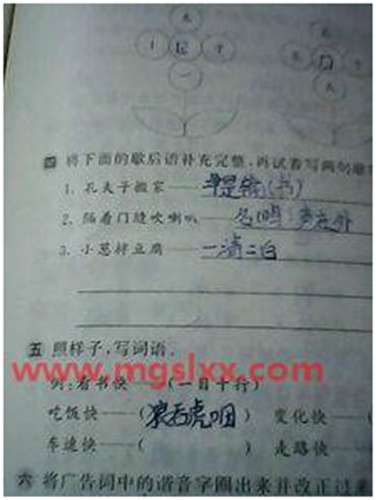 四 将下面的歇后语补充完整,再试着写两句歇
1. 孔夫子搬家——
2. 隔着门缝吹喇叭——名鸣 声在外
3. 小葱拌豆腐——一清二白
五 照样子,写词语。
www.mgslxx.com
例:看书快——(一目十行)
吃饭快——(狼吞虎咽) 变化快——
车速快——( ) 走路快——
六 将广告词中的谐音字圈出来并改正过来